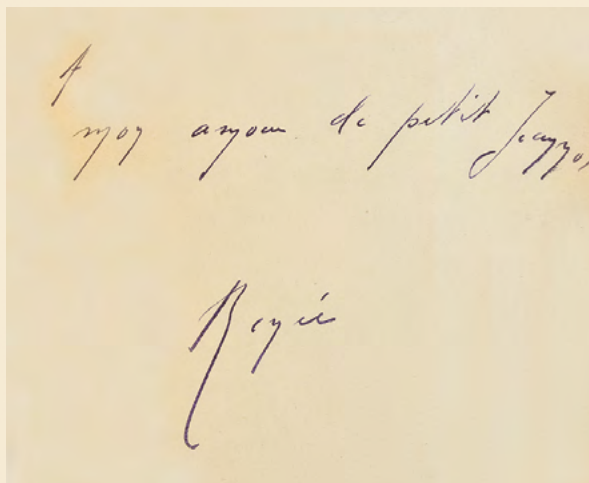 A
mon amour de petit Jeanno,
Renée